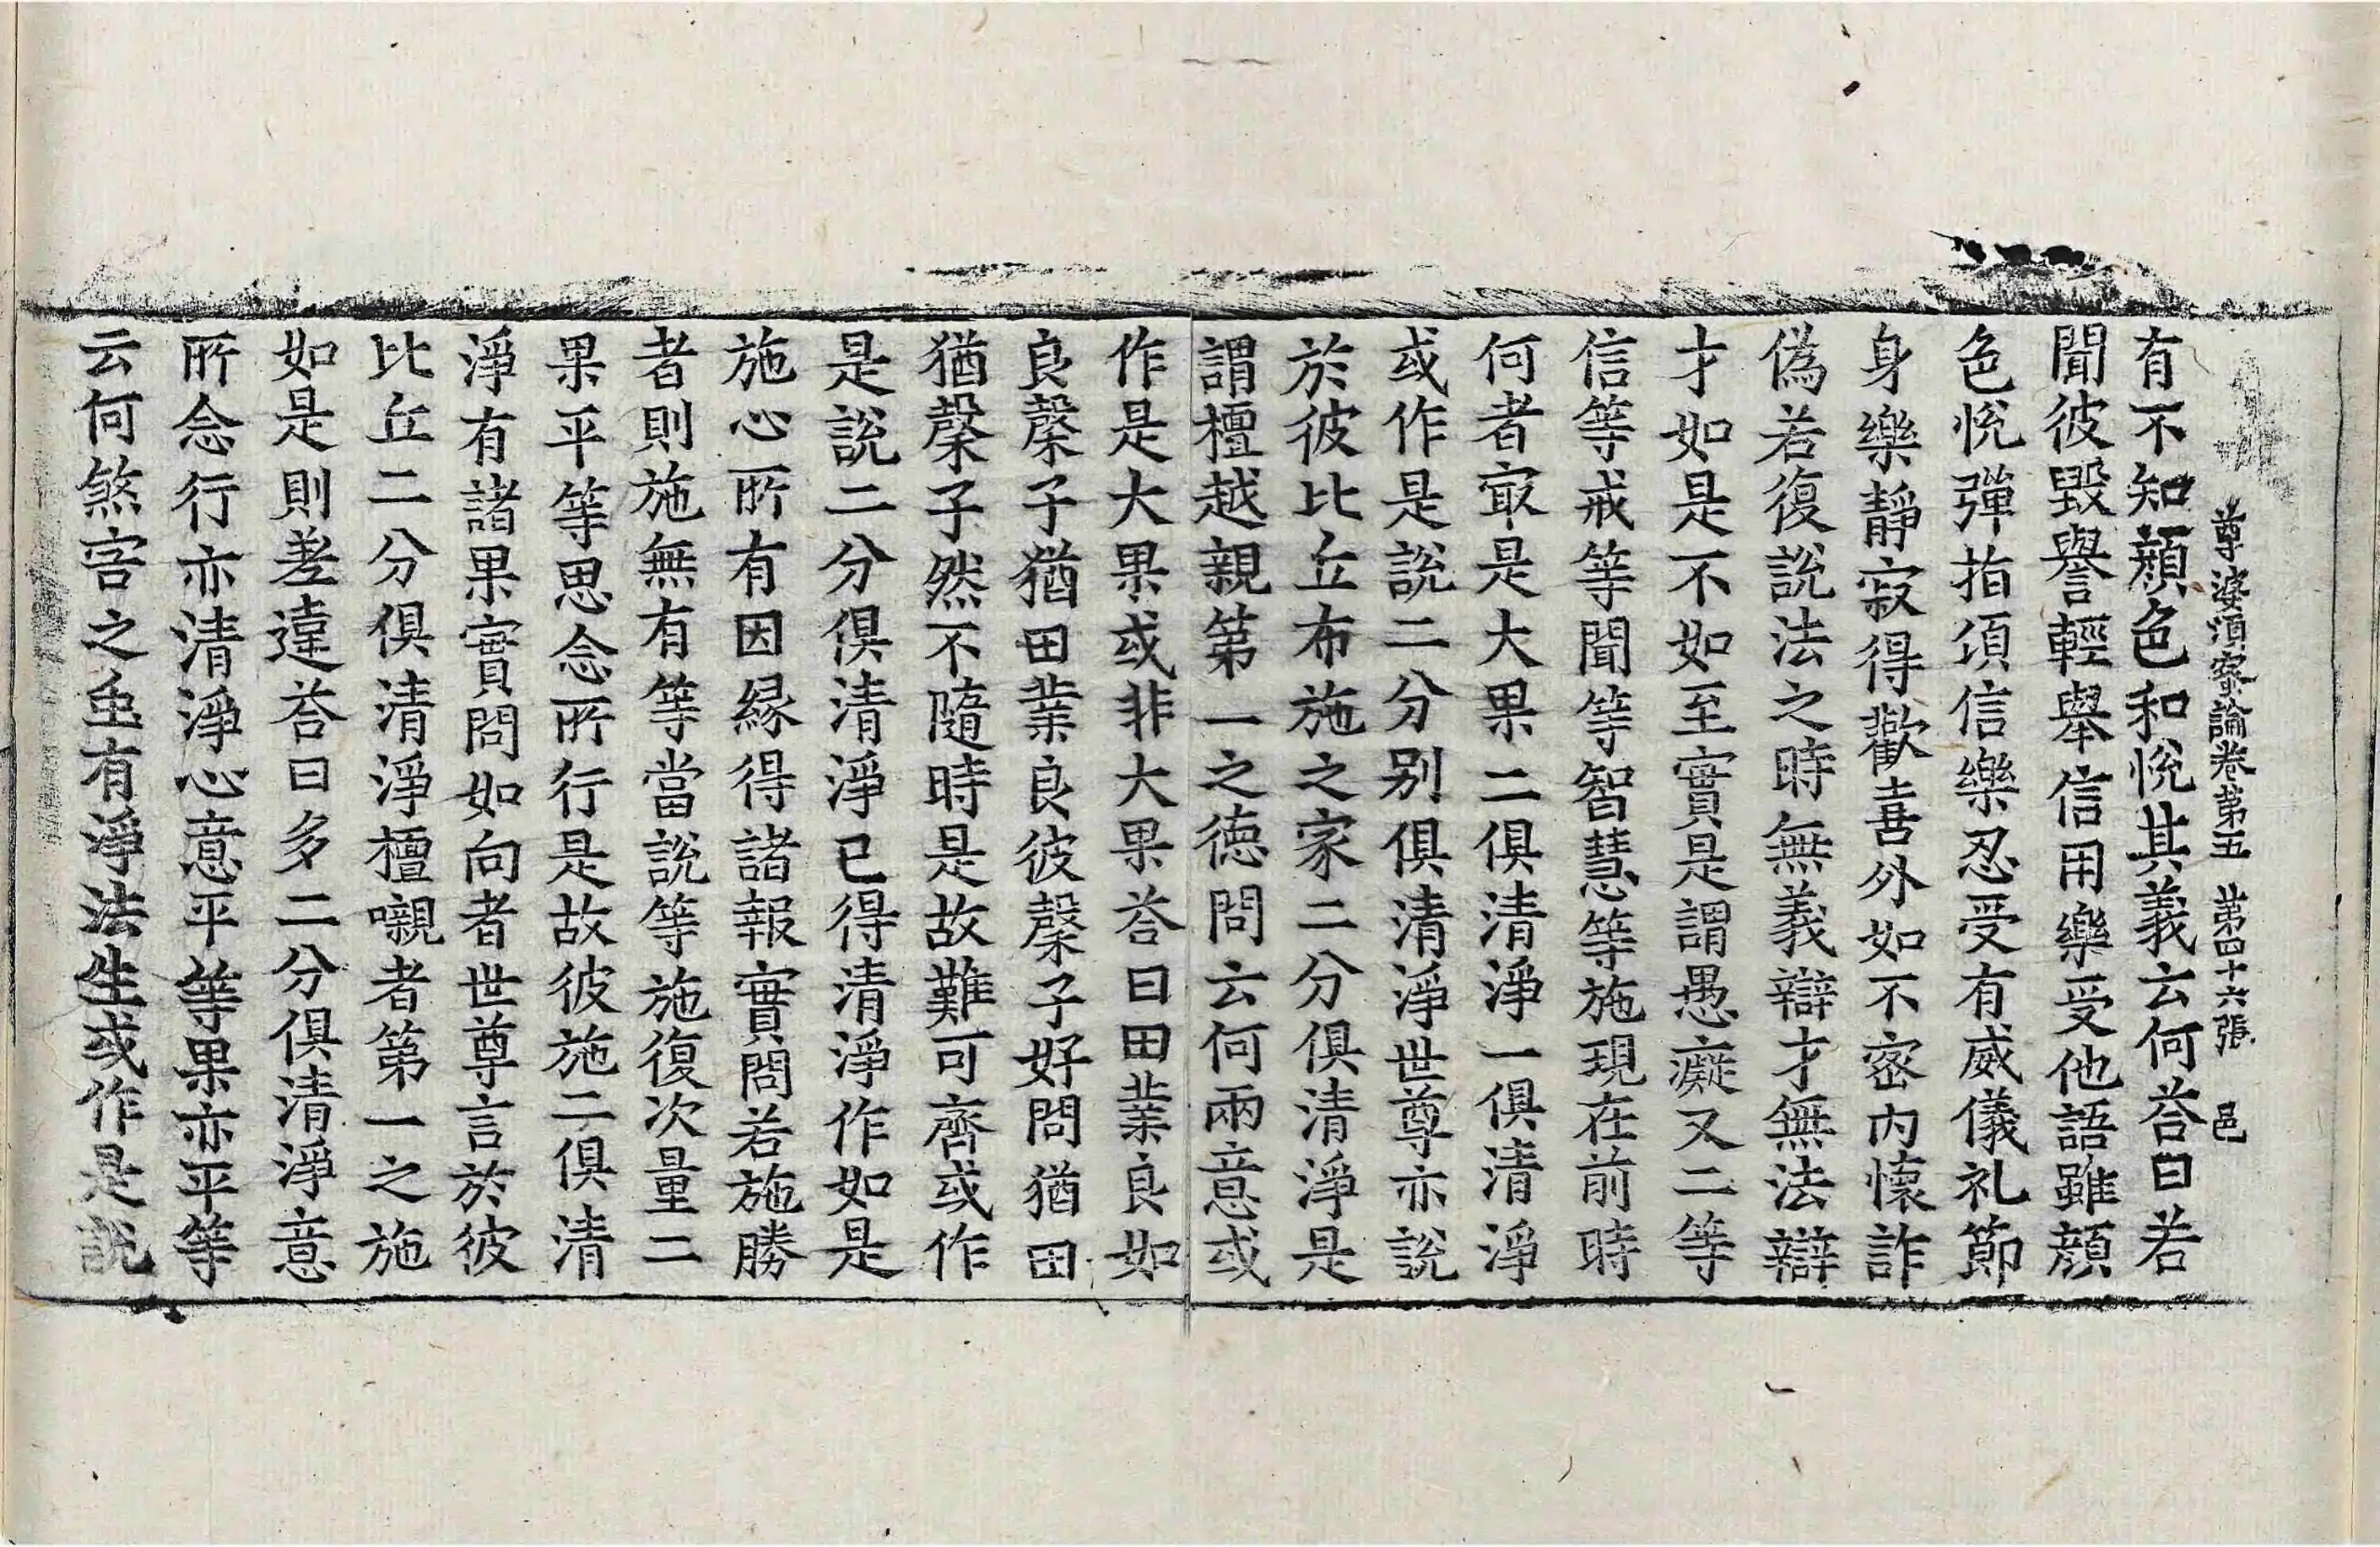 尊婆須蜜論卷第五 苐四十六張 邑
有不知顔色和恱其義云何荅曰若
聞彼毀譽輕舉信用樂受他語雖顔
色恱彈指須信樂忍受有威儀礼節
身樂靜寂得歡喜外如不宻内懷詐
偽若復說法之時無義辯才無法辯
才如是不如至實是謂愚癡又二等
信等戒等聞等智慧等施現在前時
何者㝡是大果二俱清淨一俱清淨
或作是說二分别俱清淨世尊亦說
於彼比丘布施之家二分俱清淨是
謂檀越親第一之德問云何兩意或
作是大果或非大果荅曰田業良如
良䅽子猶田業良彼䅽子好問猶田
猶䅽子然不隨時是故難可齊或作
是說二分俱清淨已得清淨作如是
施心所有因緣得諸報實問若施勝
者則施無有等當說等施復次量二
果平等思念所行是故彼施二俱清
淨有諸果實問如向者世尊言於彼
比丘二分俱清淨檀嚫者第一之施
如是則差違荅曰多二分俱清淨意
所念行亦清淨心意平等果亦平等
云何煞害之䖝有淨法生或作是說